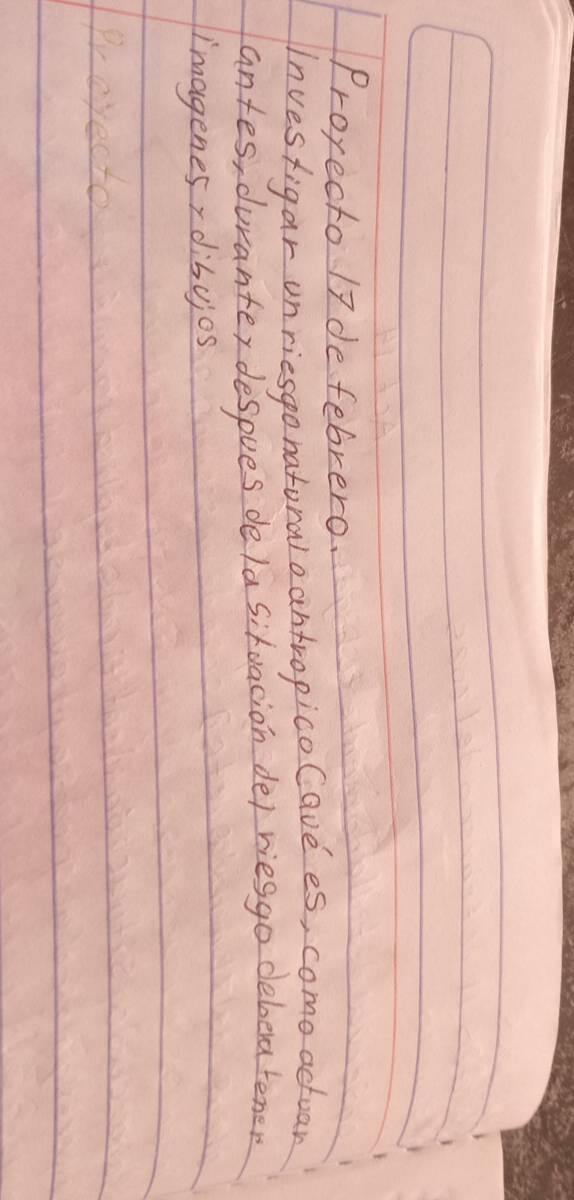 Proyecto 17 de febrero.
Investigar un riesgo natural o antropico (qué es, como actuar
antes, durante, despues de la situación del riesgo debera tener
imagenes, dibujos
Proyecto